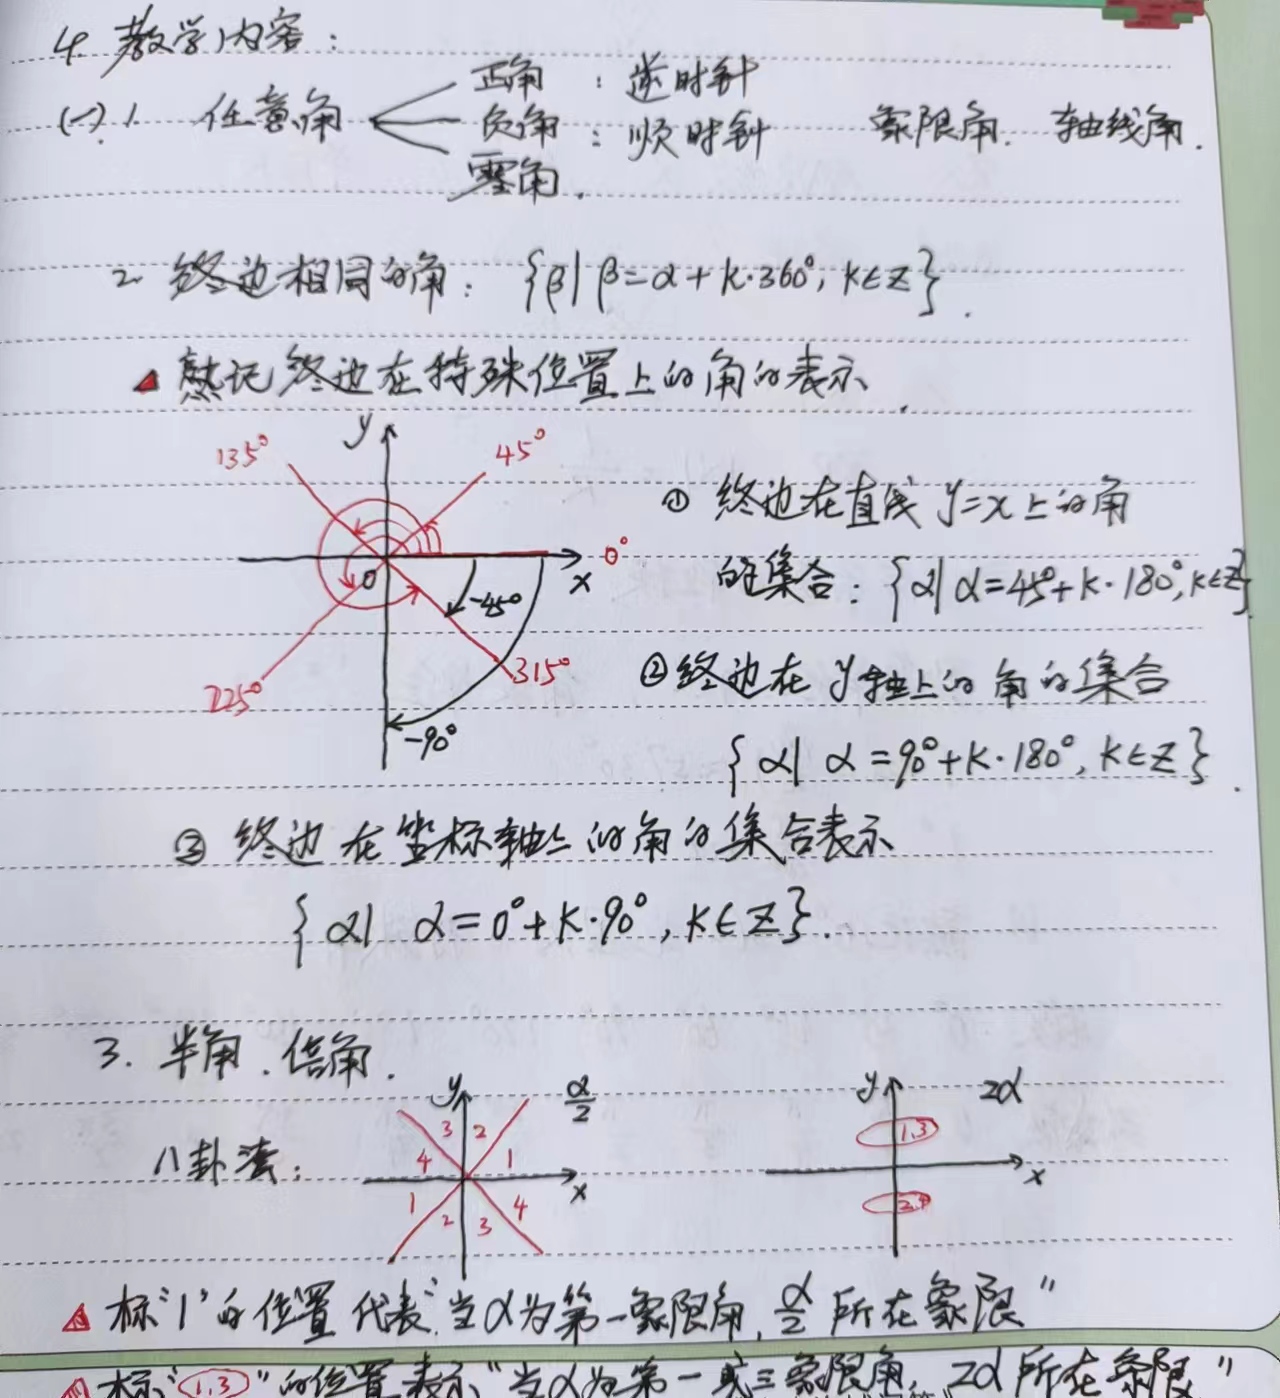 4. 教学内容：
(一) 1. 任意角
正角：逆时针
负角：顺时针
零角.
象限角. 轴线角.
2. 终边相同的角：{β| β=α+k·360°, k∈Z}.
熟记终边在特殊位置上的角的表示.
y
135°
45°
0°
x
0
-45°
315°
225°
-90°
① 终边在直线 y=x 上的角
的集合：{α| α=45°+k·180°, k∈Z}.
② 终边在 y轴上的角的集合
{α| α=90°+k·180°, k∈Z}.
③ 终边在坐标轴上的角的集合表示
{α| α=0°+k·90°, k∈Z}.
3. 半角. 倍角.
八卦法：
y
α/2
3 2
4 1
x
1 4
2 3
y
2α
1,3
x
2,4
标“1”的位置代表“当α为第一象限角, α/2 所在象限”
标“1,3”的位置表示“当α为第一或三象限角, 2α所在象限”